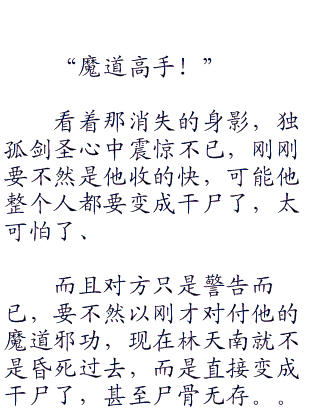 “魔道高手！”
看着那消失的身影，独
孤剑圣心中震惊不已，刚刚
要不然是他收的快，可能他
整个人都要变成干尸了，太
可怕了、
而且对方只是警告而
已，要不然以刚才对付他的
魔道邪功，现在林天南就不
是昏死过去，而是直接变成
干尸了，甚至尸骨无存。。